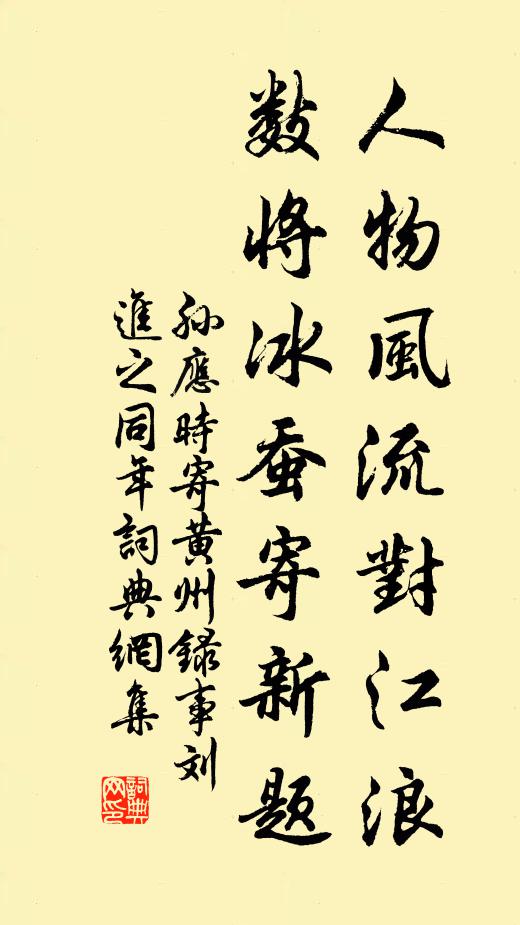 人物風流對江浪
数將冰蚕寄新题
孙應時寄黄州録事刘
進之同年詞典網集
詞典网印